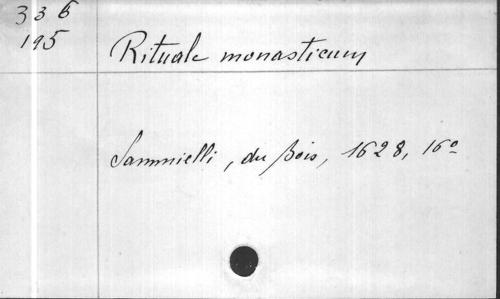 336
195
Rituale monasticum
Sammielli, du Bois, 1628, 16º